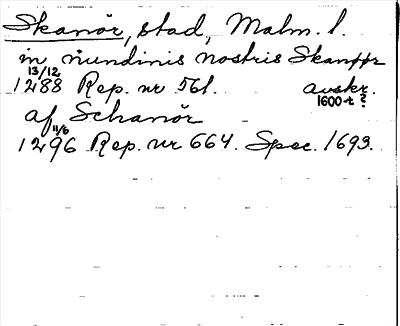 Skanör, stad, Malm. l.
in nundinis nostris Skanør
13/12 1288 Rep. nr 561. avskr. 1600-t ?
af Schanör
11/6 1296 Rep. nr 664. Spec. 1693.